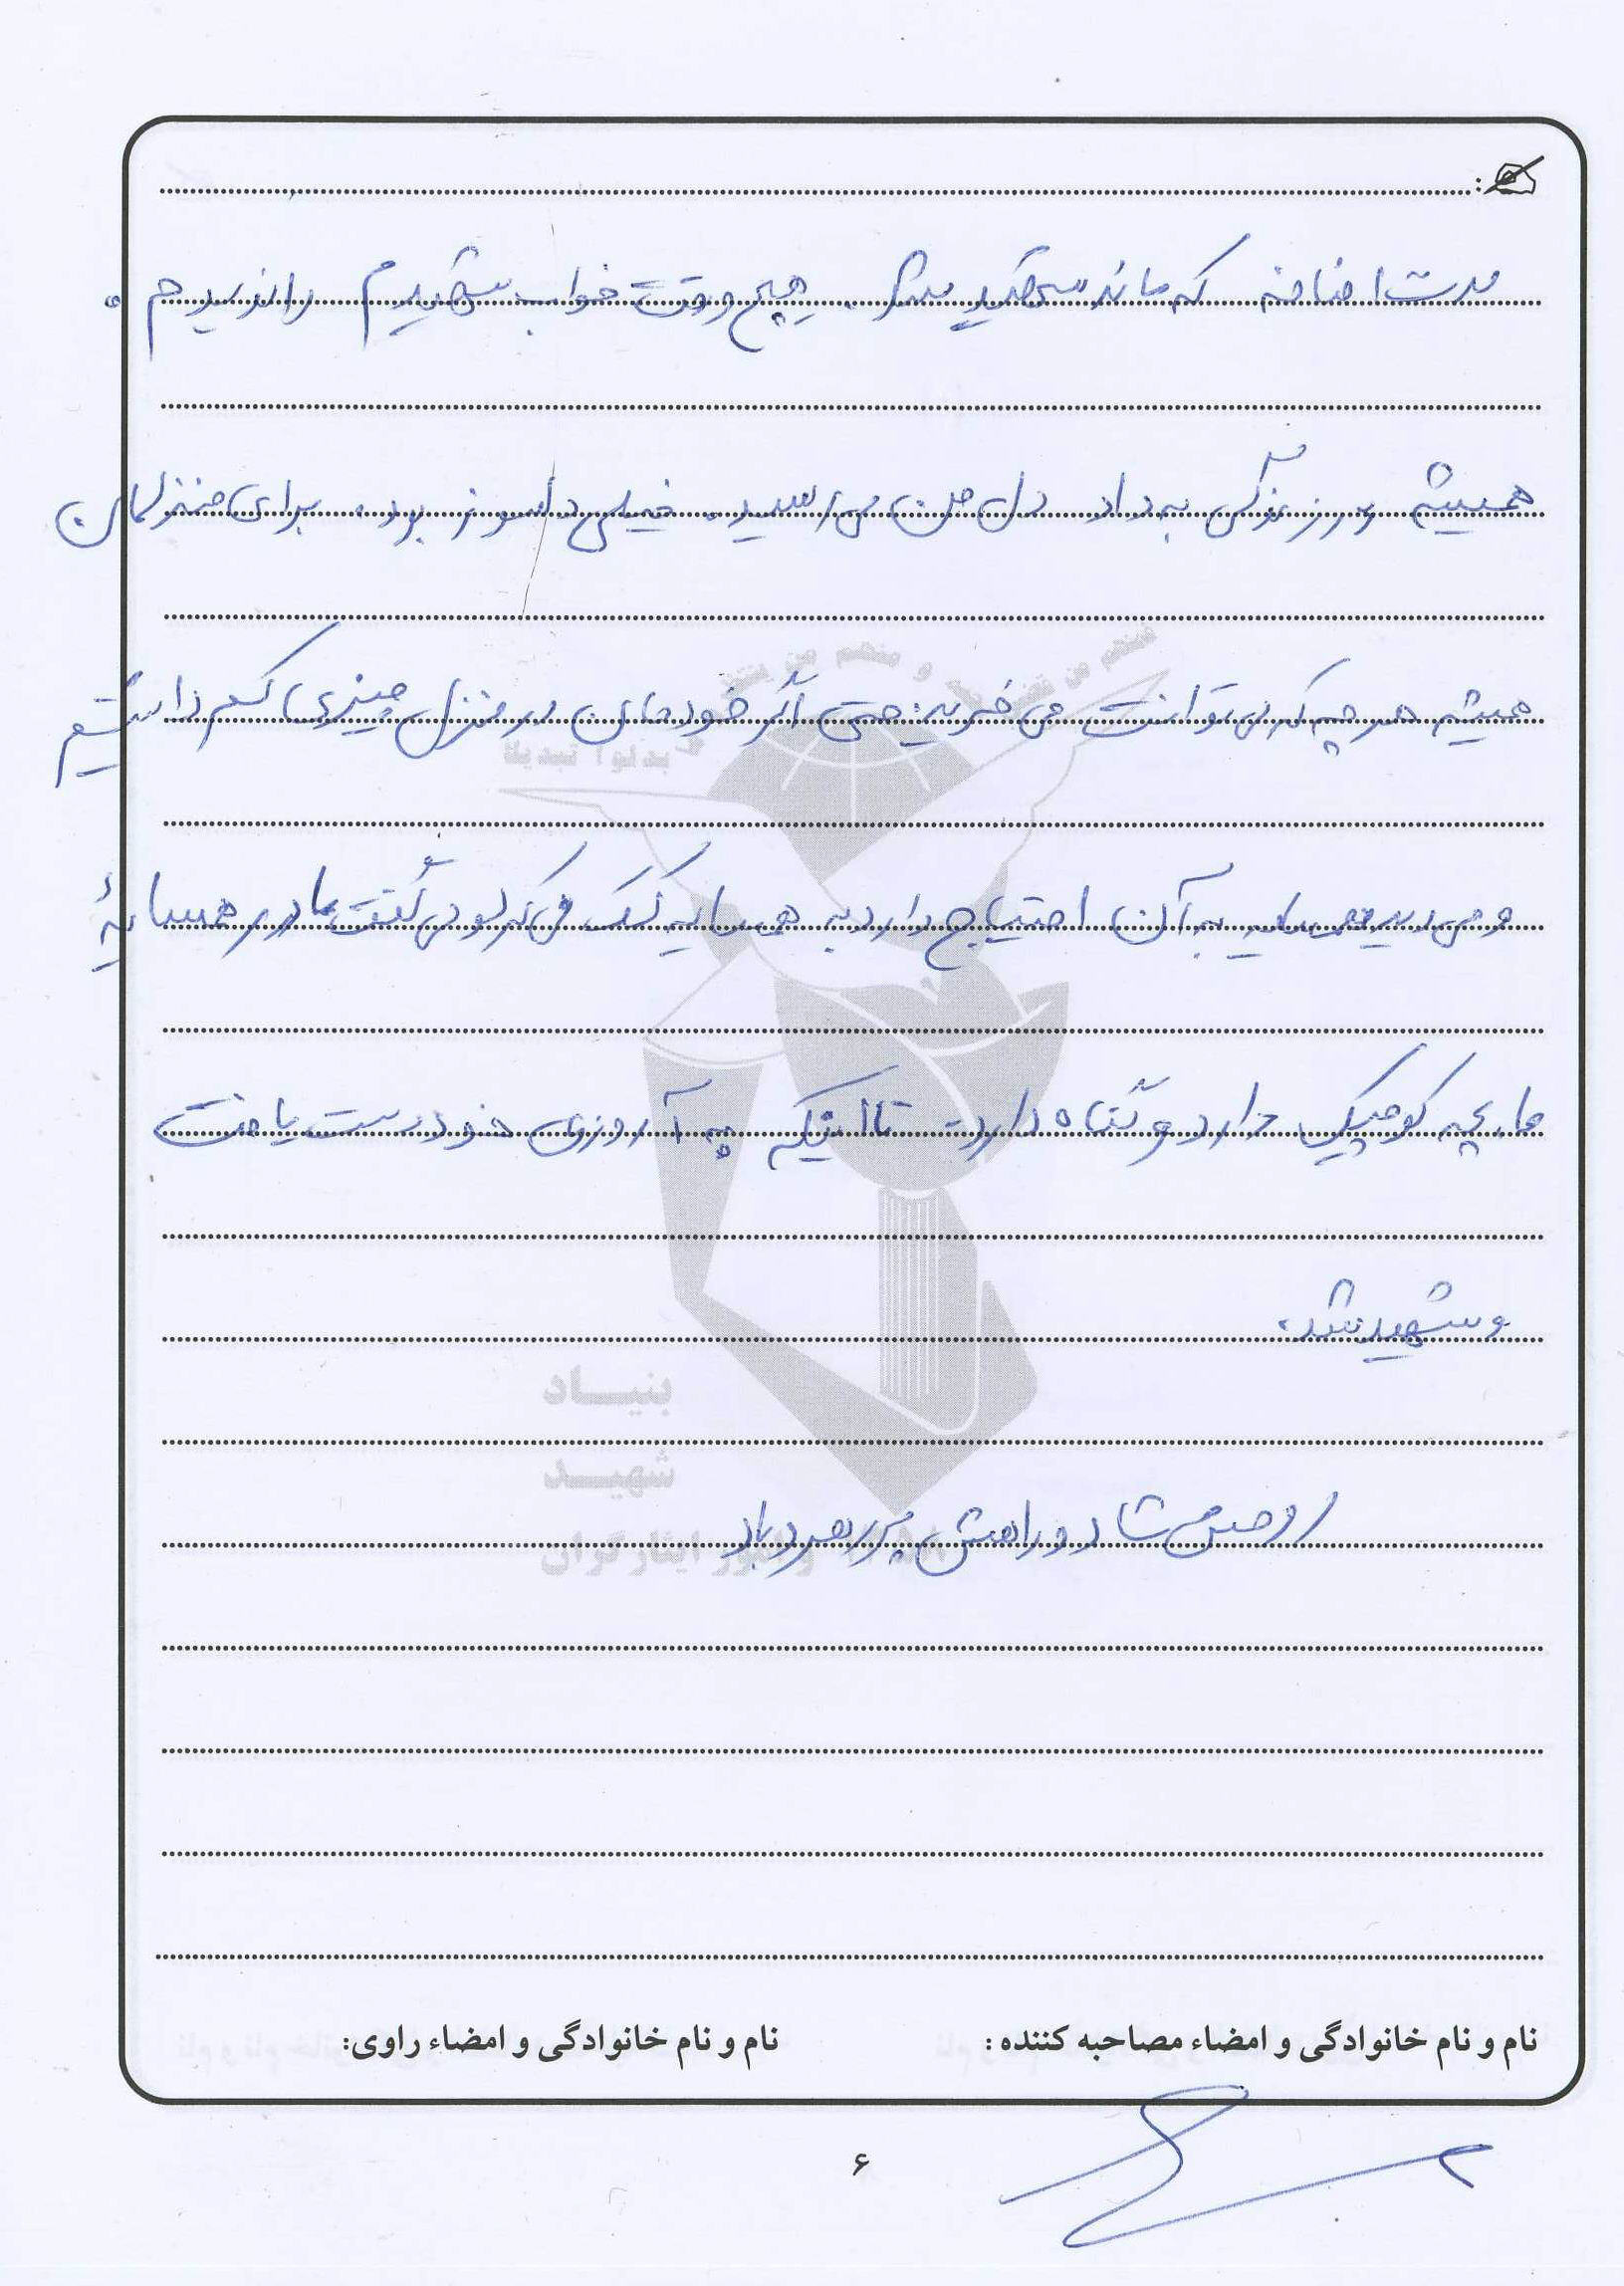 مدت اضافه که ماند شهید شد. هیچ وقت خواب شهیدم را ندیدم.
همیشه در زندگی به داد دل من می رسید. خیلی دلسوز بود. برای منزلمان
همیشه هر چه که می توانست می خرید: حتی اگر خودمان در منزل چیزی کم داشتیم
و می دید همسایه به آن احتیاج دارد به همسایه کمک می کرد و می گفت مادر همسایهٔ
ما، بچه کوچک دارد و گناه دارد. تا اینکه به آروزی خود دست یافت
و شهید شد.
روحش شاد و راهش پر رهرو باد
بنیاد
شهید
و امور ایثارگران
نام و نام خانوادگی و امضاء مصاحبه کننده: نام و نام خانوادگی و امضاء راوی:
۶